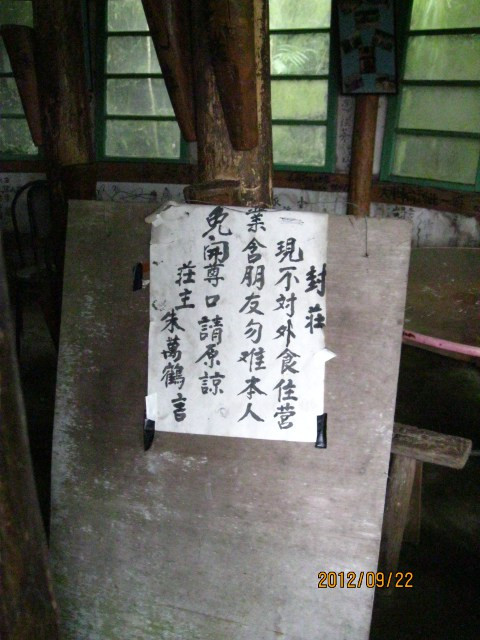 封莊
現不对外食住营
業含朋友勿难本人
免開尊口請原諒
莊主
朱萬鶴言
2012/09/22